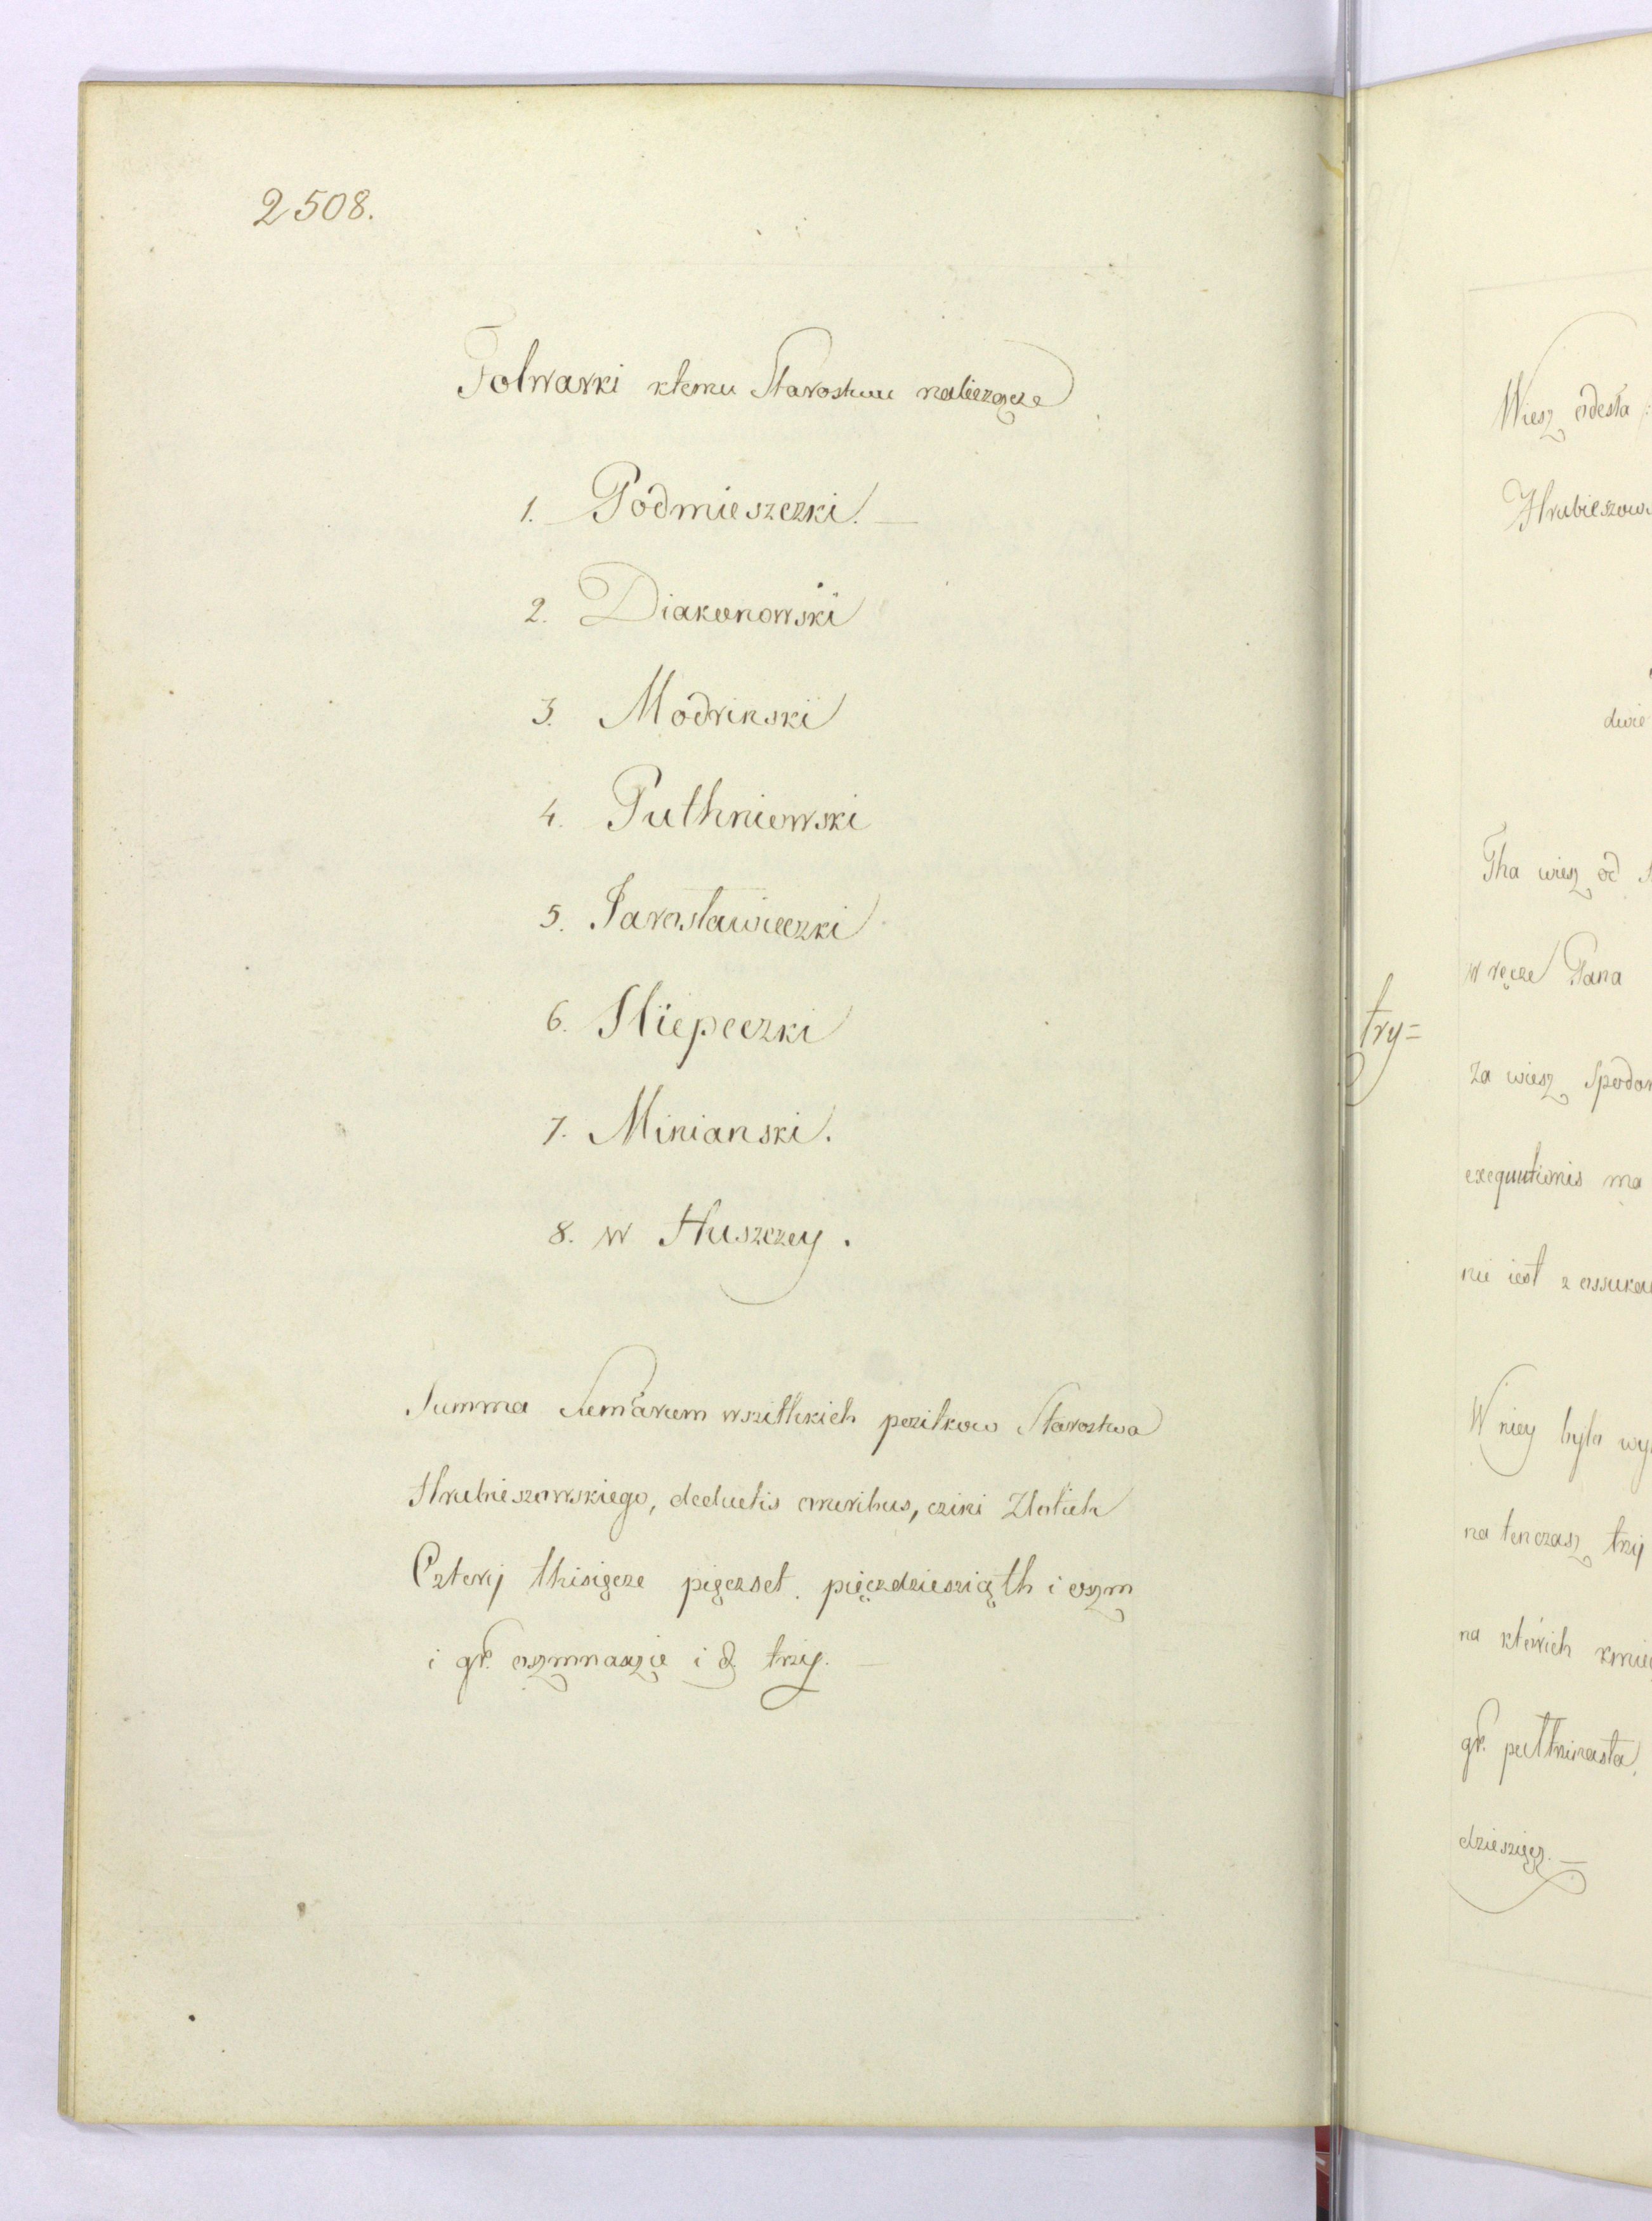 2508.
Folwarki ktemu Starostwu należącze
1. Podmieszczki.
2. Diakonowski
3. Modrinski
4. Puthniowski
5. Jarosławieczki
6. Sliepczki
7. Minianski.
8. w Huszczey.
Summa Sum̃arum wszithkich pozitkow Starostwa
Hrubieszowskiego, deductis omnibus, czini Zlotich
Czterij thisięcze pięczset. pięczdziesziąth i oszm
i gr. oszmnasczie i ₰ trzij.
Wiesz odesła
Hrubieszow
dwie
Tha wiesz od
try=
w ręcze Pana
za wiesz Spodo
exequutionis ma
nie iest z
W niey byla wy
na tenczasz trzij
na ktorich kmie
gr. pulthrinasta,
dzieszięcz.